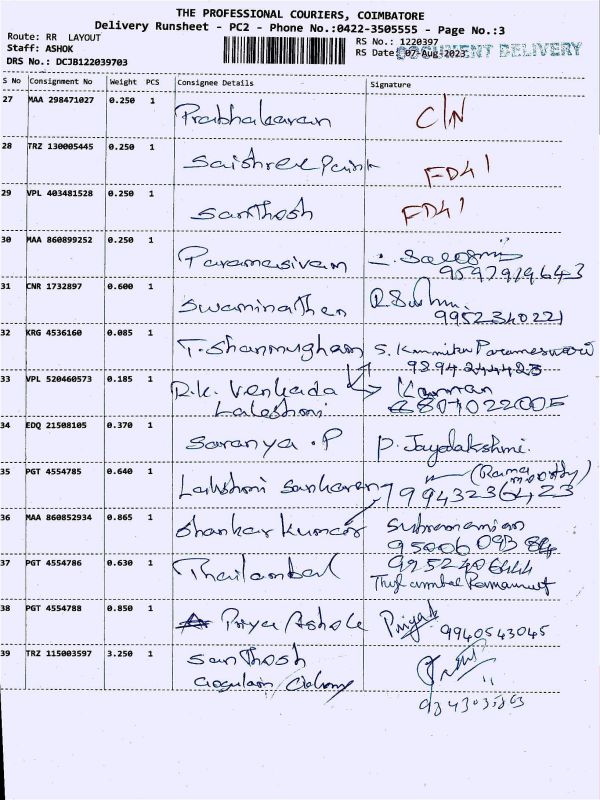 THE PROFESSIONAL COURIERS, COIMBATORE
Delivery Runsheet - PC2 - Phone No.:0422-3505555 - Page No.:3
Route: RR LAYOUT
Staff: ASHOK
DRS No.: DCJB122039703
RS No.: 1220397
RS Date: 07-Aug-2023
DOCUMENT DELIVERY
S No Consignment No Weight PCS Consignee Details Signature
27 MAA 298471027 0.250 1 Prabhakaran C/N
28 TRZ 130005445 0.250 1 Saishree FD41
29 VPL 403481528 0.250 1 Santhosh FD41
30 MAA 860899252 0.250 1 Paramasivam
9597919643
31 CNR 1732897 0.600 1 Swaminathen
9952340221
32 KRG 4536160 0.085 1 T. Shanmugham S. Parameswari
9894244423
33 VPL 520460573 0.185 1 R.K. Venkada Kannan
Laleshmi
34 EDQ 21508105 0.370 1 Saranya .P P. Jayalakshmi.
35 PGT 4554785 0.640 1 Lakshmi Sankaran (Rama moorthy)
36 MAA 860852934 0.865 1 Shankar Kumar Subramanian
95006 093 84
37 PGT 4554786 0.630 1 Thailambal 9952406444
38 PGT 4554788 0.850 1 Priya Ashok Priya
9940543045
39 TRZ 115003597 3.250 1 Santhosh
Gogulam Colony
9843035863